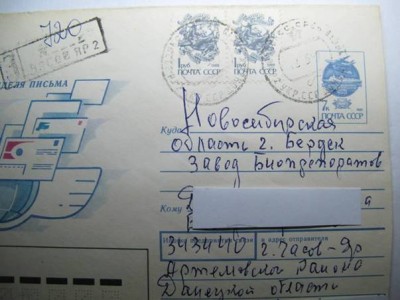 720
НЕДЕЛЯ ПИСЬМА
1 руб.
ПОЧТА СССР
1 руб.
ПОЧТА СССР
7к
ПОЧТА СССР
Куда Новосибирская
область г. Бердск
Завод Биопрепаратов
Кому
343440 г. Часов-Яр
Артемовского района
Данецкой области